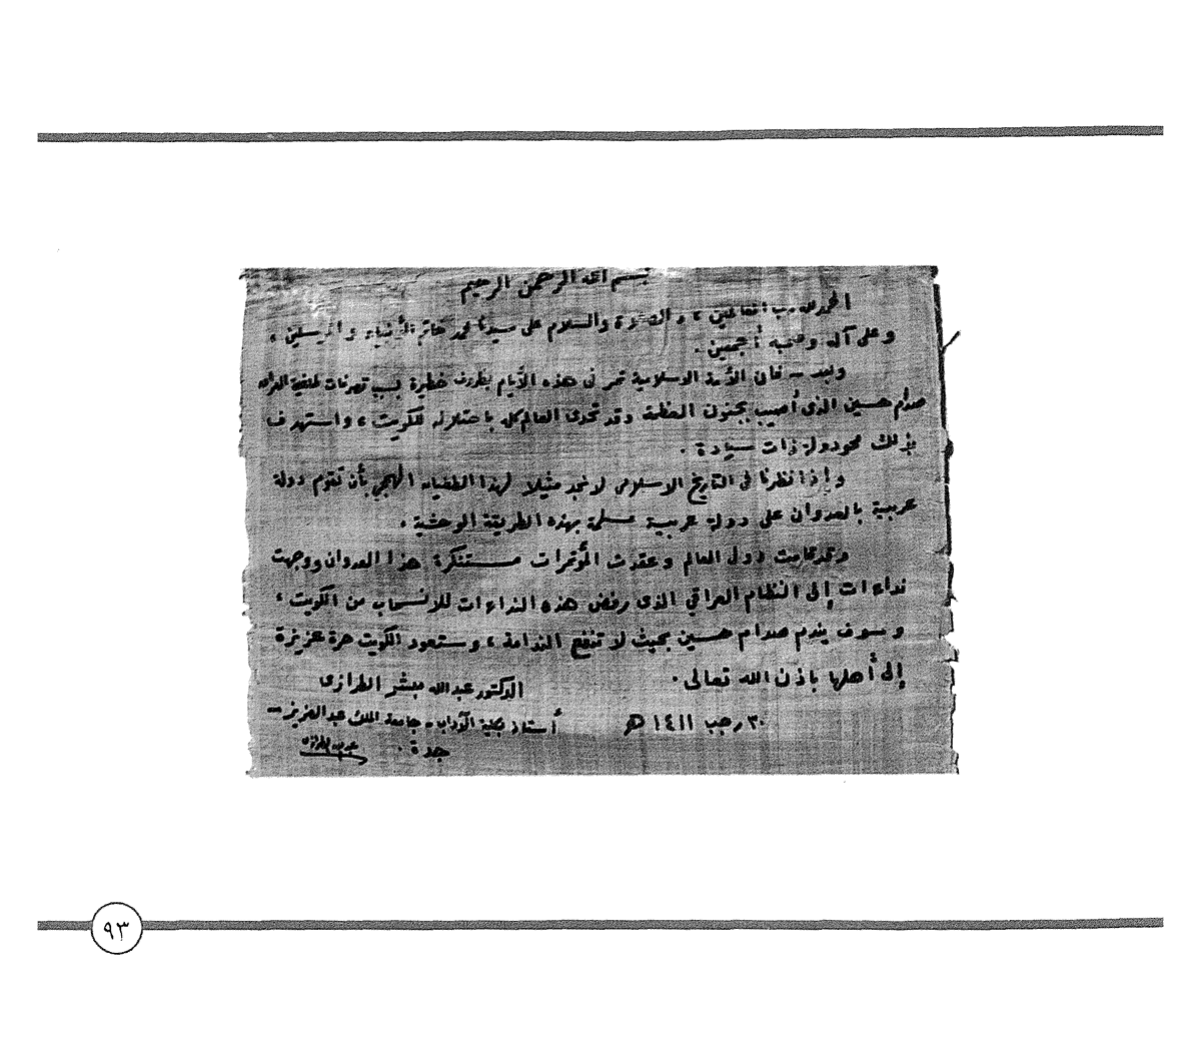 بسم الله الرحمن الرحيم
الحمد لله رب العالمين ، والصلاة والسلام على سيدنا محمد خاتم الأنبياء والمرسلين ،
وعلى آله وصحبه أجمعين .
وبعد - فإن الأمة الاسلامية تمر فى هذه الأيام بظروف خطيرة بسبب تصرفات لطاغية العراق
صدام حسين الذى أصيب بجنون العظمة وقد تحدى العالم كله باحتلاله للكويت ، واستهدف
بذلك محو دولة ذات سيادة .
وإذا نظرنا فى التاريخ الاسلامى لا نجد مثيلا لهذا الطغيان الهمجى بأن تقوم دولة
عربية بالعدوان على دولة عربية مسلمة بهذه الطريقة الوحشية .
وقد قامت دول العالم وعقدت المؤتمرات مستنكرة هذا العدوان ووجهت
نداءات إلى النظام العراقي الذى رفض هذه النداءات للانسحاب من الكويت ،
وسوف يندم صدام حسين بحيث لا تنفع الندامة ، وستعود الكويت حرة عزيزة
إلى أهلها باذن الله تعالى .
الدكتور عبدالله مبشر الطرازى
٣٠ رجب ١٤١١ هـ
أستاذ بكلية الآداب - جامعة الملك عبدالعزيز -
جدة .
٩٣